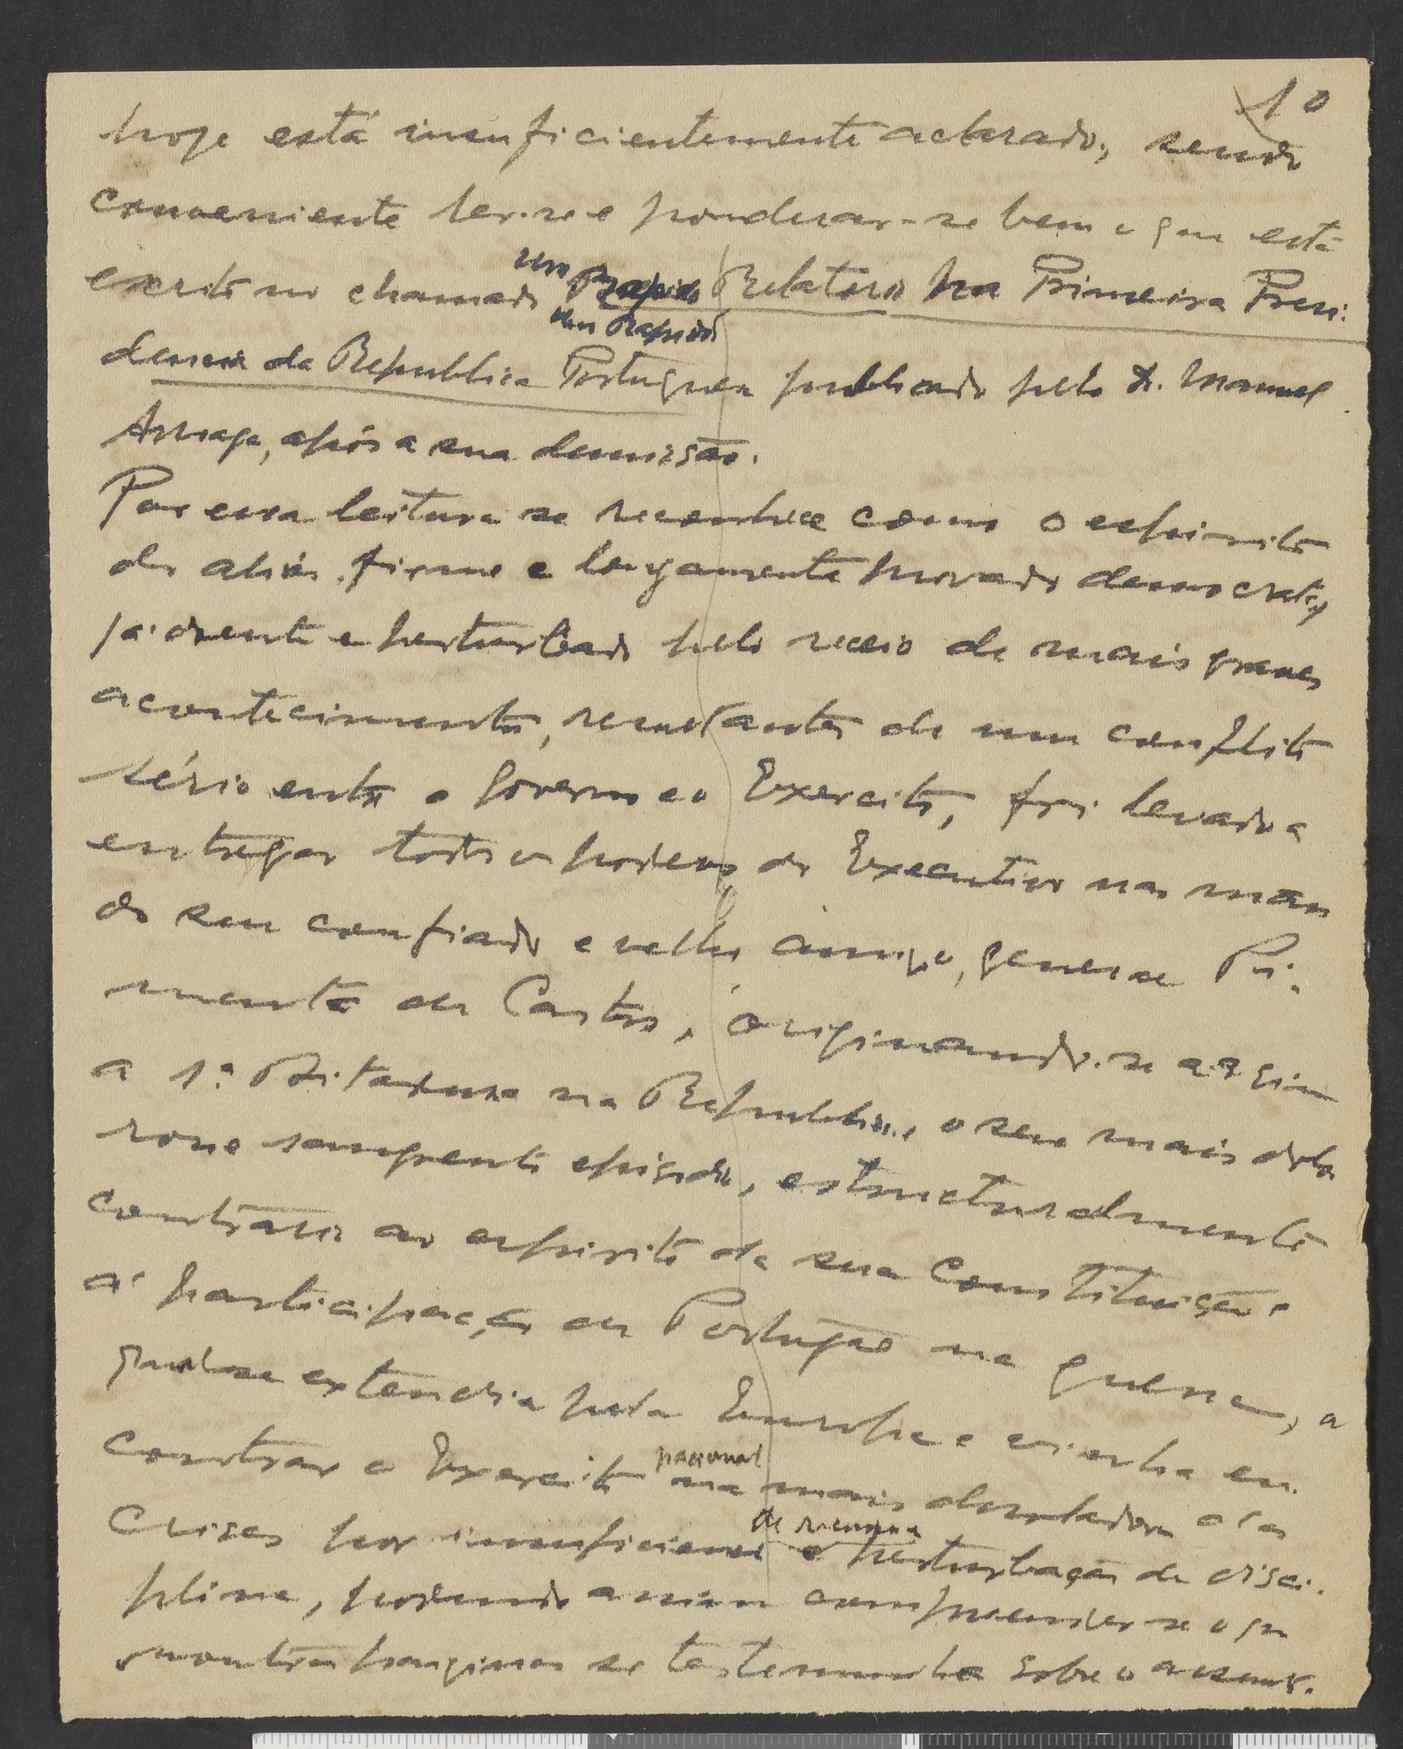 10
hoje está insuficientemente aclarado, sendo
conveniente ler-se e ponderar-se bem o que está
escrito no chamado Um Rapido Relatorio Na Primeira Presi-
Um Rapido
dencia da Republica Portuguesa publicado pelo Dr. Manuel
Arriaga, após a sua demissão.
Por essa leitura se reconhece como o espirito
do aliás firme e longamente provado democrata,
ja doente e perturbado pelo receio de mais graves
acontecimentos, resultantes de um conflito
sério entre o Governo e o Exercito, foi levado a
entregar todos os poderes do Executivo nas mãos
do seu confiado e velho amigo, general Pi-
menta de Castro, originando-se assim
a 1ª Ditadura na Republica, o seu mais dolo
roso e sangrento episodio, estructuralmente
contrario ao espirito da sua Constituição e
á participação de Portugal na guerra, a
qual se extendia pela Europa e vinha en-
contrar o Exercito nacional na mais desoladora das
crises por insuficiencia de recursos e perturbação de disci-
plina, podendo assim compreender-se o que
noutras paginas se testemunha sobre o assun-